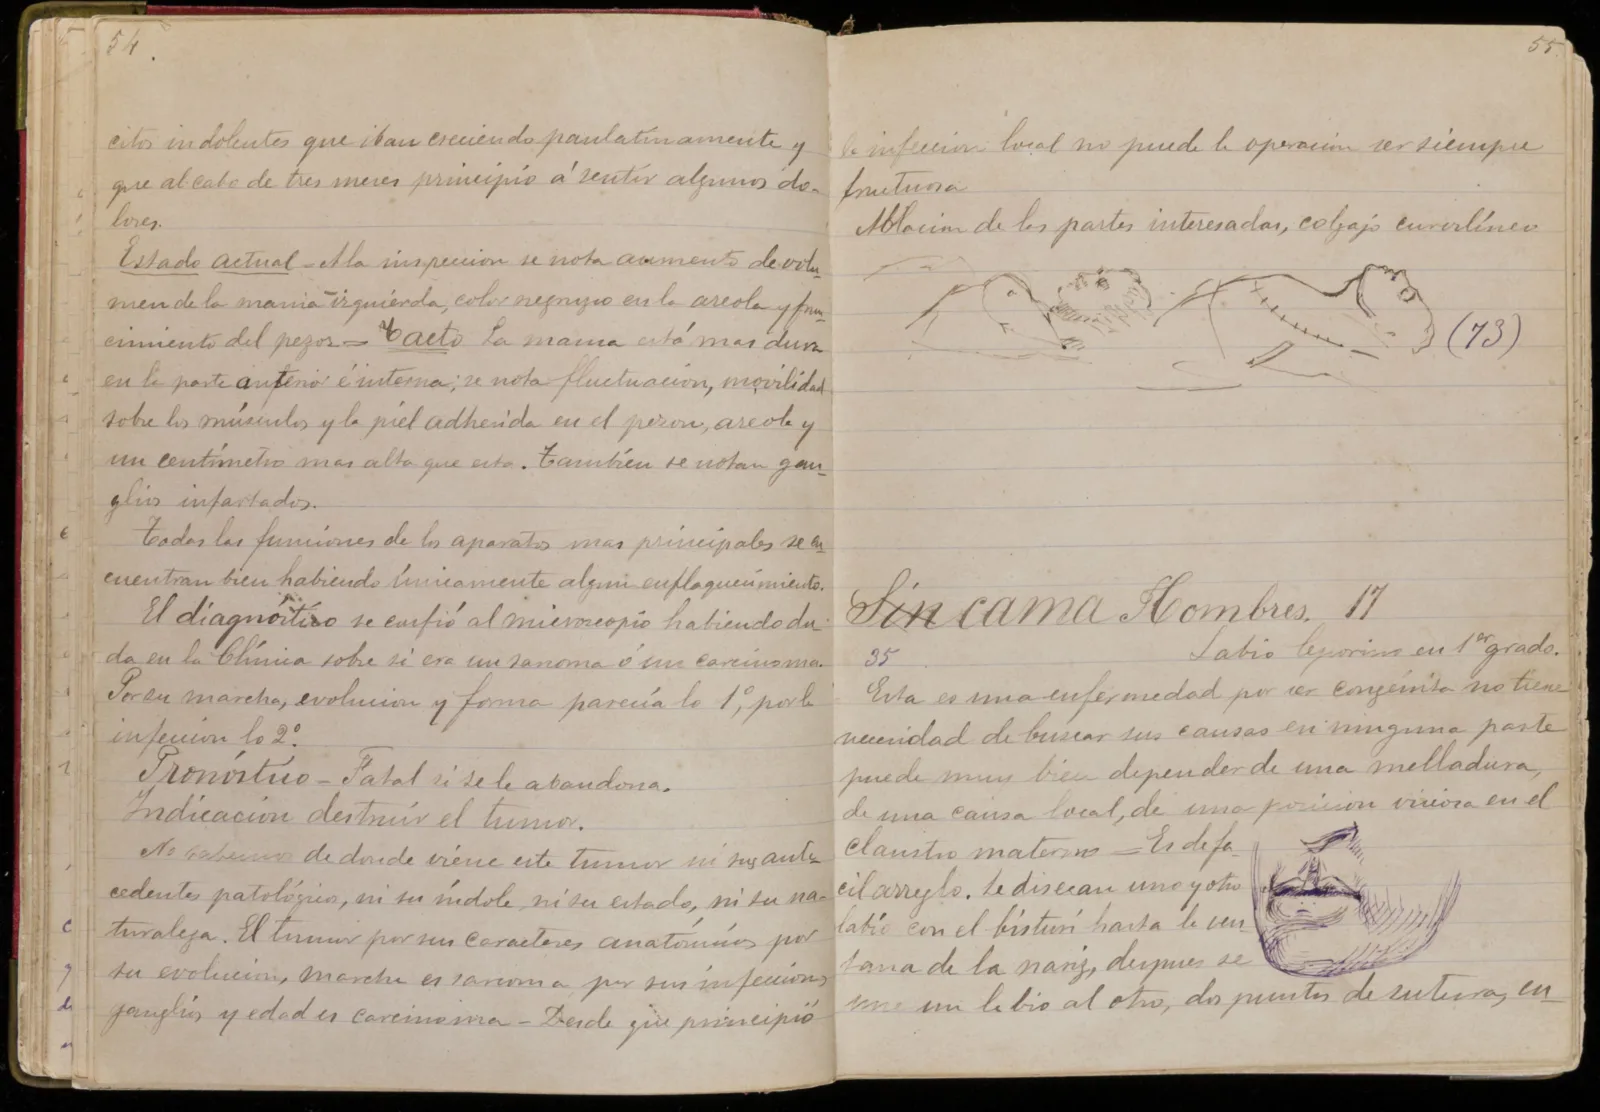 54.
citos indolentes que iban creciendo paulatinamente y
que al cabo de tres meses principio á sentir algunos do-
lores.
Estado actual - A la inspeccion se nota aumento de volu-
men de la mama izquierda, color negruzco en la areola y frun-
cimiento del pezon = Tacto La mama está mas dura
en la parte anterior é interna; se nota fluctuación, movilidad
sobre los músculos y la piel adherida en el pezon, areola y
un centímetro mas alto que esta. También se notan gan-
glios infartados.
Todas las funciones de los aparatos mas principales se en-
cuentran bien habiendo únicamente algun enflaquecimiento.
El diagnóstico se confió al microscopio habiendo du-
da en la Clínica sobre si era un sarcoma ó un carcinoma.
Por su marcha, evolucion y forma parecía lo 1º, por la
infeccion lo 2º.
Pronóstico - Fatal si se le abandona.
Indicación destruir el tumor.
No sabemos de donde viene este tumor ni sus ante-
cedentes patológicos, ni su índole, ni su estado, ni su na-
turaleza. El tumor por sus caracteres anatómicos por
su evolucion, marcha es sarcoma, por sus infecciones
ganglios y edad es carcinoma - Desde que principió
55.
la infeccion local no puede la operacion ser siempre
fructuosa
Ablacion de las partes interesadas, colgajo curvilíneo
(73)
Sin cama Hombres. 17
35 Labio leporino en 1er grado.
Esta es una enfermedad por ser congénita no tiene
necesidad de buscar sus causas en ninguna parte
puede muy bien depender de una melladura,
de una causa local, de una posicion viciosa en el
claustro materno = Es de fa-
cil arreglo. Se disecan uno y otro
labio con el bisturí hasta la ven-
tana de la nariz, despues se
une un labio al otro, dos puntos de sutura, en-